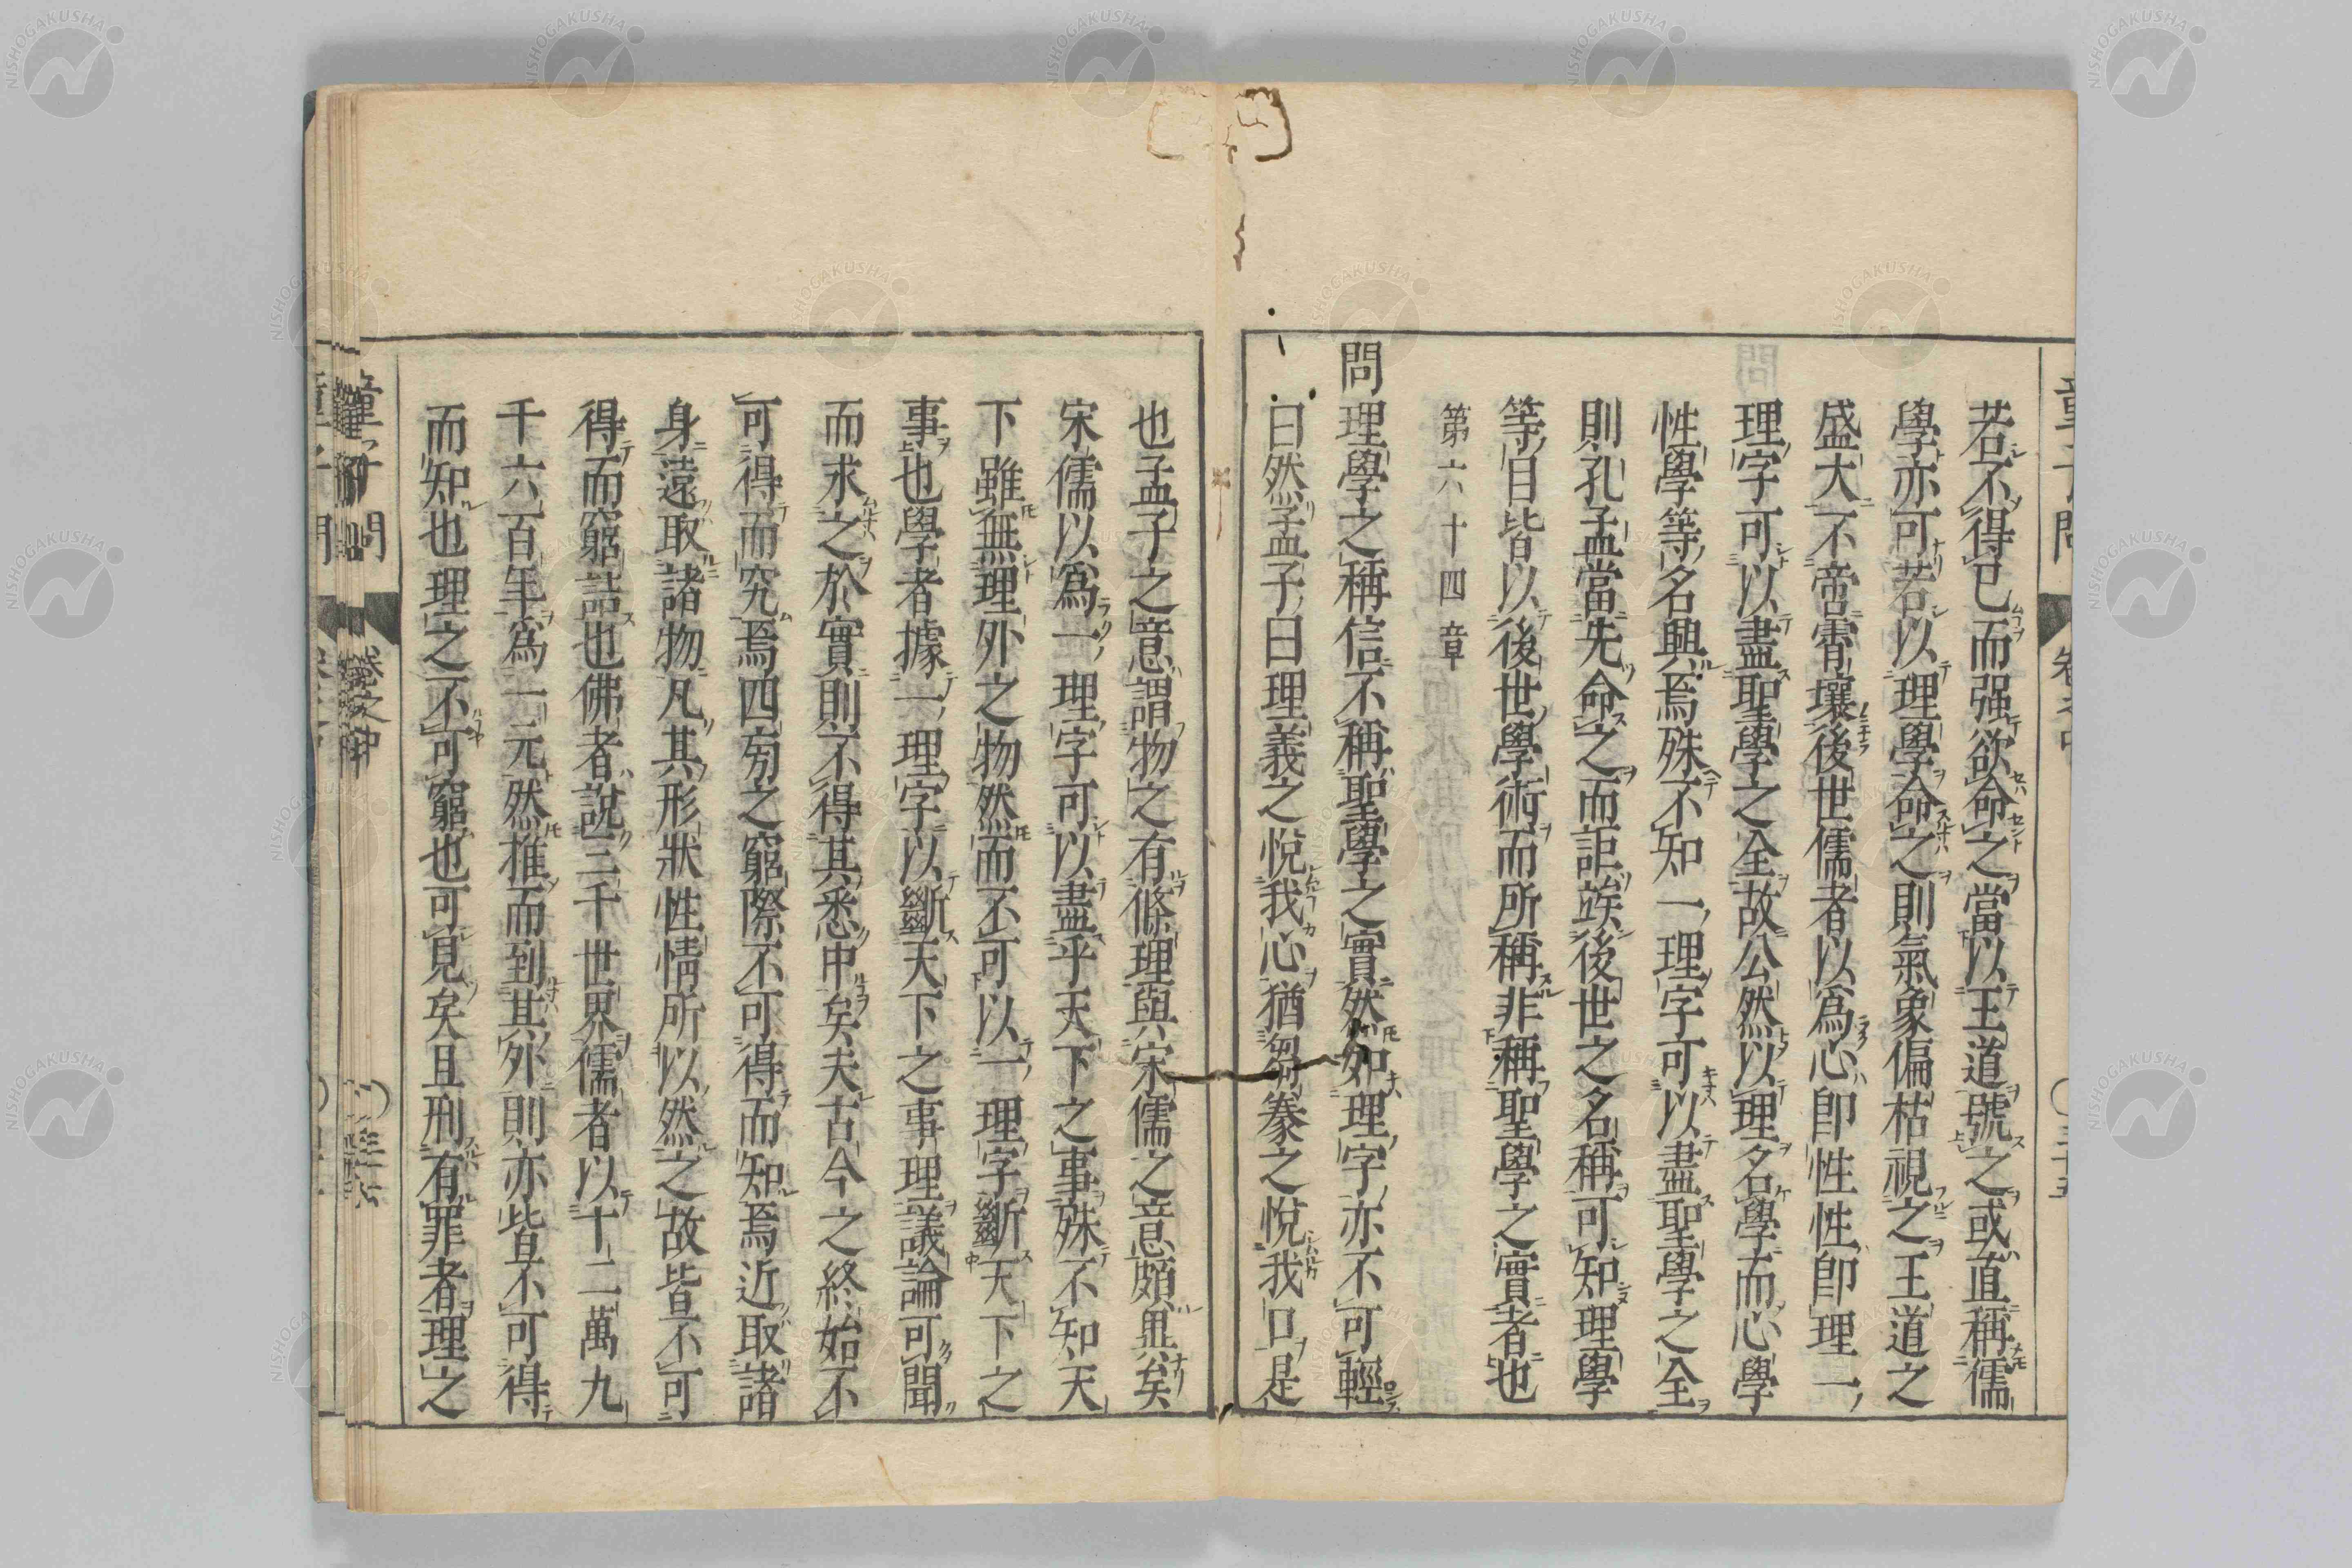 若不得已而强欲命之當以王道號之或直稱儒
學亦可若以理學命之則氣象偏枯視之王道之
盛大不啻霄壤後世儒者以爲心卽性性卽理一
理字可以盡聖學之全故公然以理名學而心學
性學等名興焉殊不知一理字可以盡聖學之全
則孔孟當先命之而詎竢後世之名稱可知理學
等目皆以後世學術而所稱非稱聖學之實者也
第六十四章
問理學之稱信不稱聖學之實然如理字亦不可輕
曰然孟子曰理義之悅我心猶芻豢之悅我口是
也孟子之意謂物之有條理與宋儒之意頗異矣
宋儒以爲一理字可以盡乎天下之事殊不知天
下雖無理外之物然而不可以一理字斷天下之
事也學者據一理字以斷天下之事理議論可聞
而求之於實則不得其悉中矣夫古今之終始不
可得而究焉四旁之窮際不可得而知焉近取諸
身遠取諸物凡其形狀性情所以然之故皆不可
得而窮詰也佛者說三千世界儒者以十二萬九
千六百年爲一元然推而到其外則亦皆不可得
而知也理之不可窮也可見矣且刑有罪者理之
童子問
卷之中
NISHOGAKUSHA